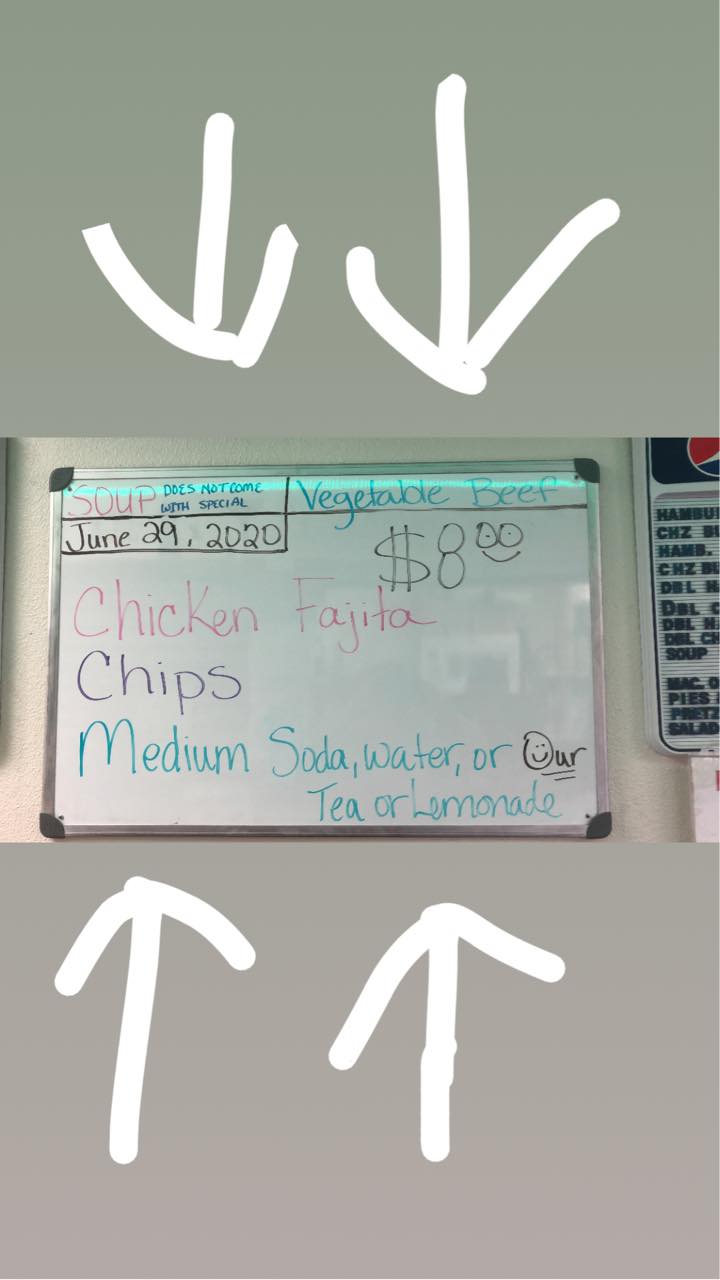 SOUP DOES NOT COME WITH SPECIAL Vegetable Beef
June 29, 2020
$8.00
Chicken Fajita
Chips
Medium Soda, water, or Our
Tea or Lemonade
CHZ
HAMB.
DBL
DBL
DBL
DBL
SOUP
PIES